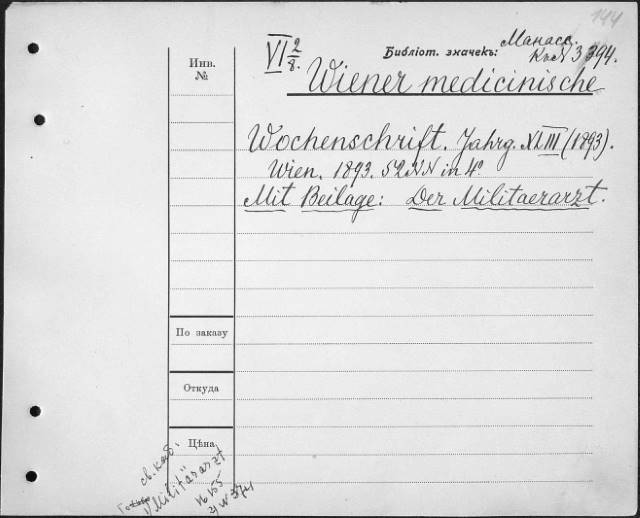 144
VI 2/8.
Библіот. значекъ: Манасс.
К. № 3394.
Инв.
№
Wiener medicinische
Wochenschrift. Jahrg. XLIII (1893).
Wien. 1893. 52 NN in 4°
Mit Beilage: Der Militaerarzt.
По заказу
Откуда
Цѣна
св. каб.
"Militärarzt